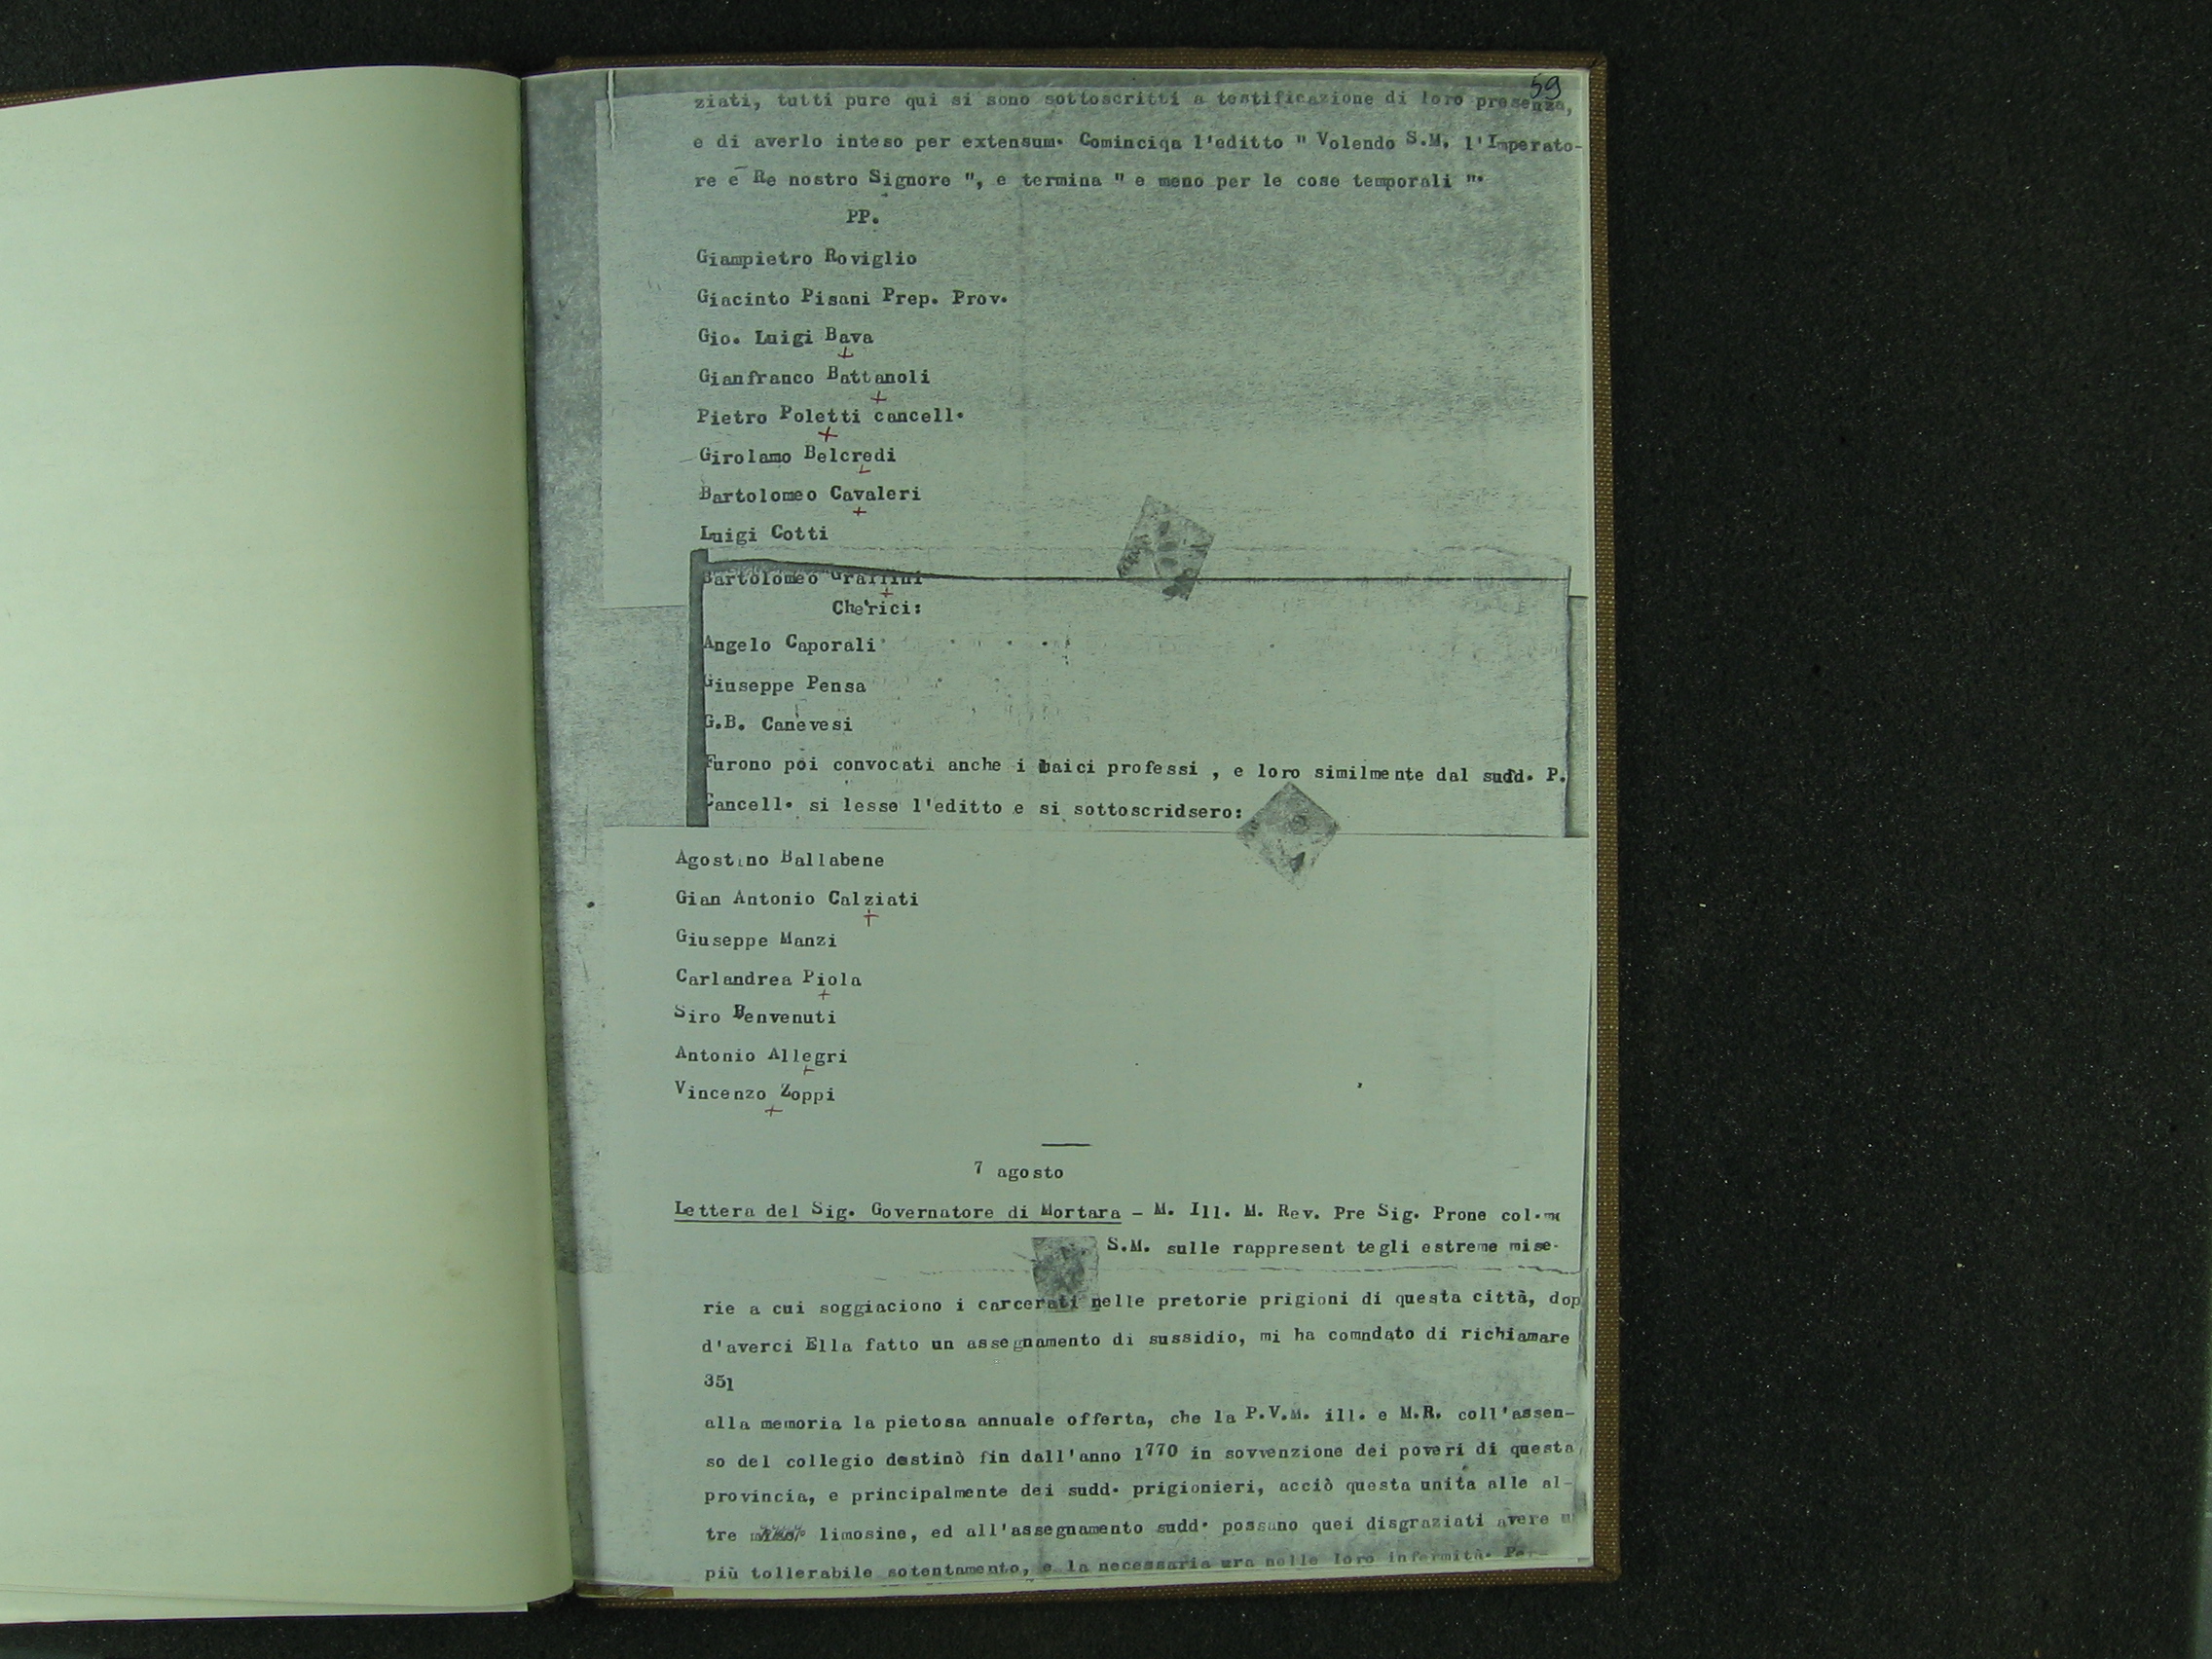 59
ziati, tutti pure qui si sono sottoscritti a testificazione di loro presenza,
e di averlo inteso per extensum. Cominciqa l'editto " Volendo S.M. l'Imperato-
re e Re nostro Signore ", e termina " e meno per le cose temporali ".
PP.
Giampietro Roviglio
Giacinto Pisani Prep. Prov.
Gio. Luigi Bava
Gianfranco Battanoli
Pietro Poletti cancell.
Girolamo Belcredi
Bartolomeo Cavaleri
Luigi Cotti
Bartolomeo Graffini
Cherici:
Angelo Caporali
Giuseppe Pensa
G.B. Canevesi
Furono poi convocati anche i laici professi , e loro similmente dal sudd. P.
Cancell. si lesse l'editto e si sottoscridsero:
Agostino Ballabene
Gian Antonio Calziati
Giuseppe Manzi
Carlandrea Piola
Siro Benvenuti
Antonio Allegri
Vincenzo Zoppi
7 agosto
Lettera del Sig. Governatore di Mortara - M. Ill. M. Rev. Pre Sig. Prone
S.M. sulle rappresent tegli estreme mise-
rie a cui soggiaciono i carcerati nelle pretorie prigioni di questa città, dop
d'averci Ella fatto un assegnamento di sussidio, mi ha comndato di richiamare
351
alla memoria la pietosa annuale offerta, che la P.V.M. ill. e M.R. coll'assen-
so del collegio destinò fin dall'anno 1770 in sovvenzione dei poveri di questa
provincia, e principalmente dei sudd. prigionieri, acciò questa unita alle al-
tre limosine, ed all'assegnamento sudd. possano quei disgraziati avere
più tollerabile sotentamento, e la necessaria ura nelle loro infermità. Per-